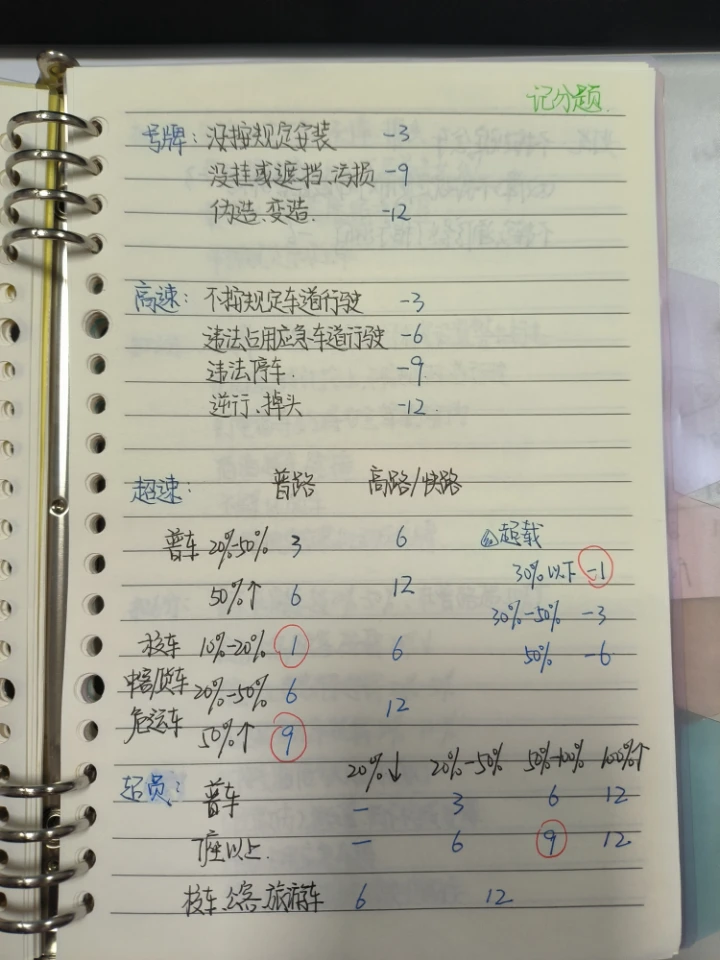 记分题.
号牌: 没按规定安装 -3
没挂或遮挡、污损 -9
伪造、变造. -12
高速: 不按规定车道行驶 -3
违法占用应急车道行驶 -6
违法停车. -9
逆行、掉头 -12.
超速: 普路 高路/快路
普车 20%-50% 3 6
50%↑ 6 12
超载
30%以下 -1
30%-50% -3
50% -6
校车 10%-20% 1 6
中客/货车 20%-50% 6 12
危运车 50%↑ 9
20%↓ 20%-50% 50%-100% 100%↑
超员: 普车 — 3 6 12
7座以上. — 6 9 12
校车、公客、旅游车 6 12